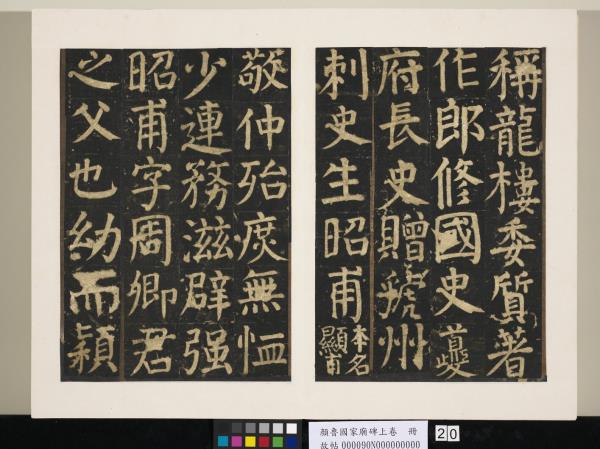 稱龍樓委質著
作郎修國史夔
府長史贈虢州
刺史生昭甫本名顯甫
敬仲殆庶無恤
少連務滋辟强
昭甫字周卿君
之父也幼而穎
顏魯國家廟碑上卷 冊
故帖 000090N000000000
20